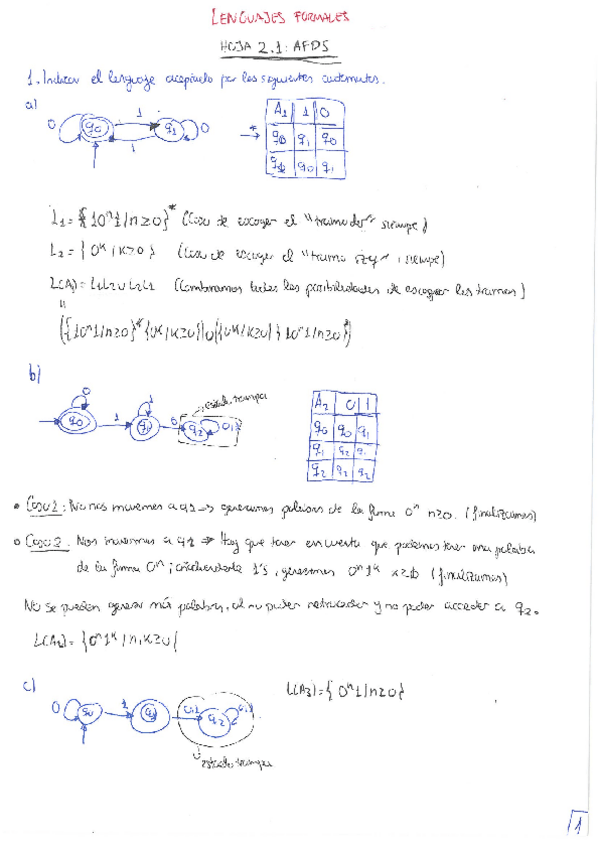 LENGUAJES FORMALES
HOJA 2.1: AFDS
1. Indicar el lenguaje aceptado por los siguientes autómatas.
a)
0 q0 1 q1 0
1
A1 1 0
q0 q1 q0
q1 q0 q1
L1 = {10ⁿ1/n≥0}* (Caso de escoger el "tramo de" siempre)
L2 = {0ᵏ/k≥0} (Caso de escoger el "tramo", siempre)
L(A1) = L1L2 ∪ L2L1 (Combinamos todas las posibilidades de escoger los tramos)
"
({10ⁿ1/n≥0}*{0ᵏ/k≥0}) ∪ ({0ᵏ/k≥0}{10ⁿ1/n≥0}*)
b)
0 1 estado trampa
q0 1 q1 0 q2 0,1
A2 0 1
q0 q0 q1
q1 q2 q1
q2 q2 q2
Caso 1: No nos movemos a q1 → generamos palabras de la forma 0ⁿ n≥0. (finalizamos)
Caso 2: Nos movemos a q1 ⇒ Hay que tener en cuenta que podemos tener una palabra
de la forma 0ⁿ; añadiendole 1's, generamos 0ⁿ1ᵏ (finalizamos)
No se pueden generar más palabras, al no poder retroceder y no poder acceder a q2.
L(A2) = {0ⁿ1ᵏ/n,k≥0}
c)
L(A3) = {0ⁿ1/n≥0}
0 q0 1 q1 0,1 q2 0,1
estado trampa
1